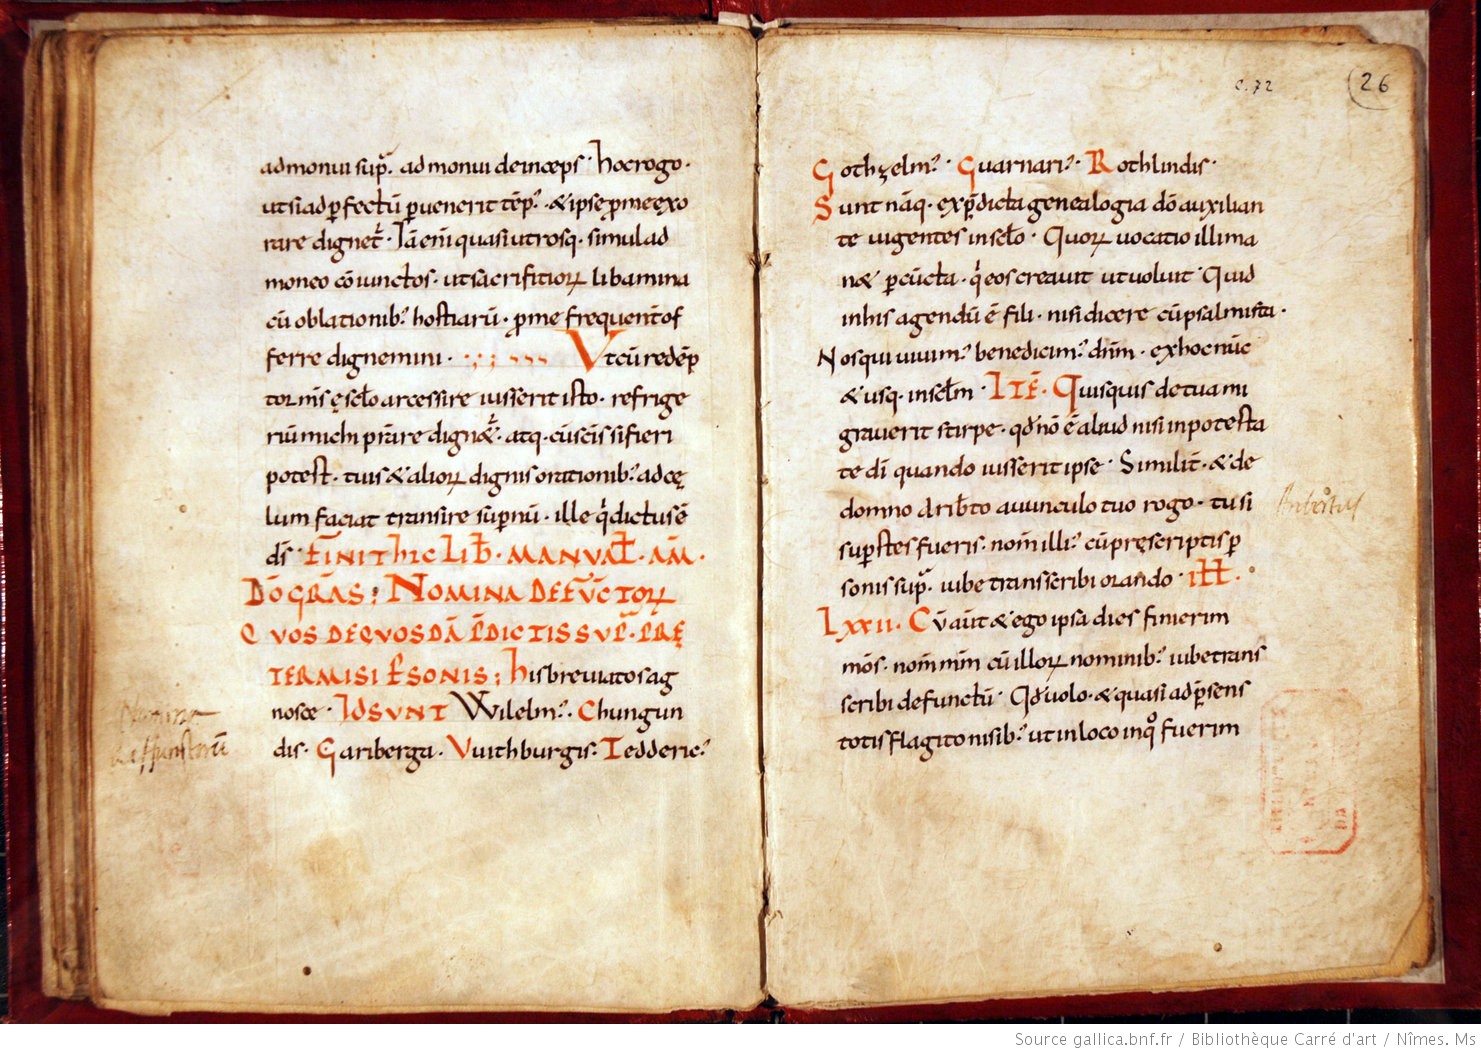 admonui sup̄. admonui deinceps. hoc rogo.
ut si ad p̄fectū ꝑuenerit tēpꝰ. & ipse ꝓ me exo
rare dignet̄. Iā enī quasi utrosq. simul ad
moneo cōiunctos. ut sacrificiorꝝ libamina
cū oblationibꝰ hostiarū. ꝓ me frequent̄ of
ferre digne mini. Vt cū redēp
tor m̄s ę sc̄lo arcessire iusserit isto. refrige
riū michi p̄rare dign&̄. atq. cū sc̄is si fieri
potest. tuis & aliorꝝ dignis orationibꝰ ad cę
lum faciat transire sup̄nū. ille q̇ dictus ē
d̄s. FINIT HIC LIB̄. MANVAL̄. AM̄.
DŌ GRĀS; NOMINA DEFŪCTORꝝ
QVOS DEQVOSDĀ P̄DICTIS SVP̄. P̄RĘ
TERMISI P̄SONIS; His breviatos ag
nosce. ID SVNT Wilelmꝰ. Chungun
dis. Gariberga. Vuithburgis. Teddericꝰ
Nomina
deffunctorū
c. 72
26
Gothzelmꝰ. Guarnariꝰ. Rothlindis.
Sunt nāq. ex p̄dicta genealogia dō auxilian
te uigentes in sclo. Quorꝝ uocatio illi ma
n& ꝑ cūcta. q̇ eos creauit ut uoluit. Quid
in his agendū ē fili. nisi dicere cū psalmista.
Nos qui uiuimꝰ benedicimꝰ dn̄m. ex hoc nūc
& usq. in sclm̄. ITĒ. Quisquis de tua mi
grauerit stirpe. qd̄ nō ē aliud nisi in potesta
te dī quando iusserit ipse. Similit̄. & de
domno aribto auunculo tuo rogo. tu si
sup̄stes fueris. nom̄ illiꝰ cū pręscriptis ꝑ
sonis sup̄. iube transscribi orando.
LXXII. Cū aūt & ego ipsa dies finierim
mōs. nom̄ mm̄ cū illorꝝ nominibꝰ iube trans
scribi defunctū. Qd̄ uolo. & quasi ad p̄sens
totis flagito nisibꝰ ut in loco in qͦ fuerim
Source gallica.bnf.fr / Bibliothèque Carré d'art / Nîmes. Ms